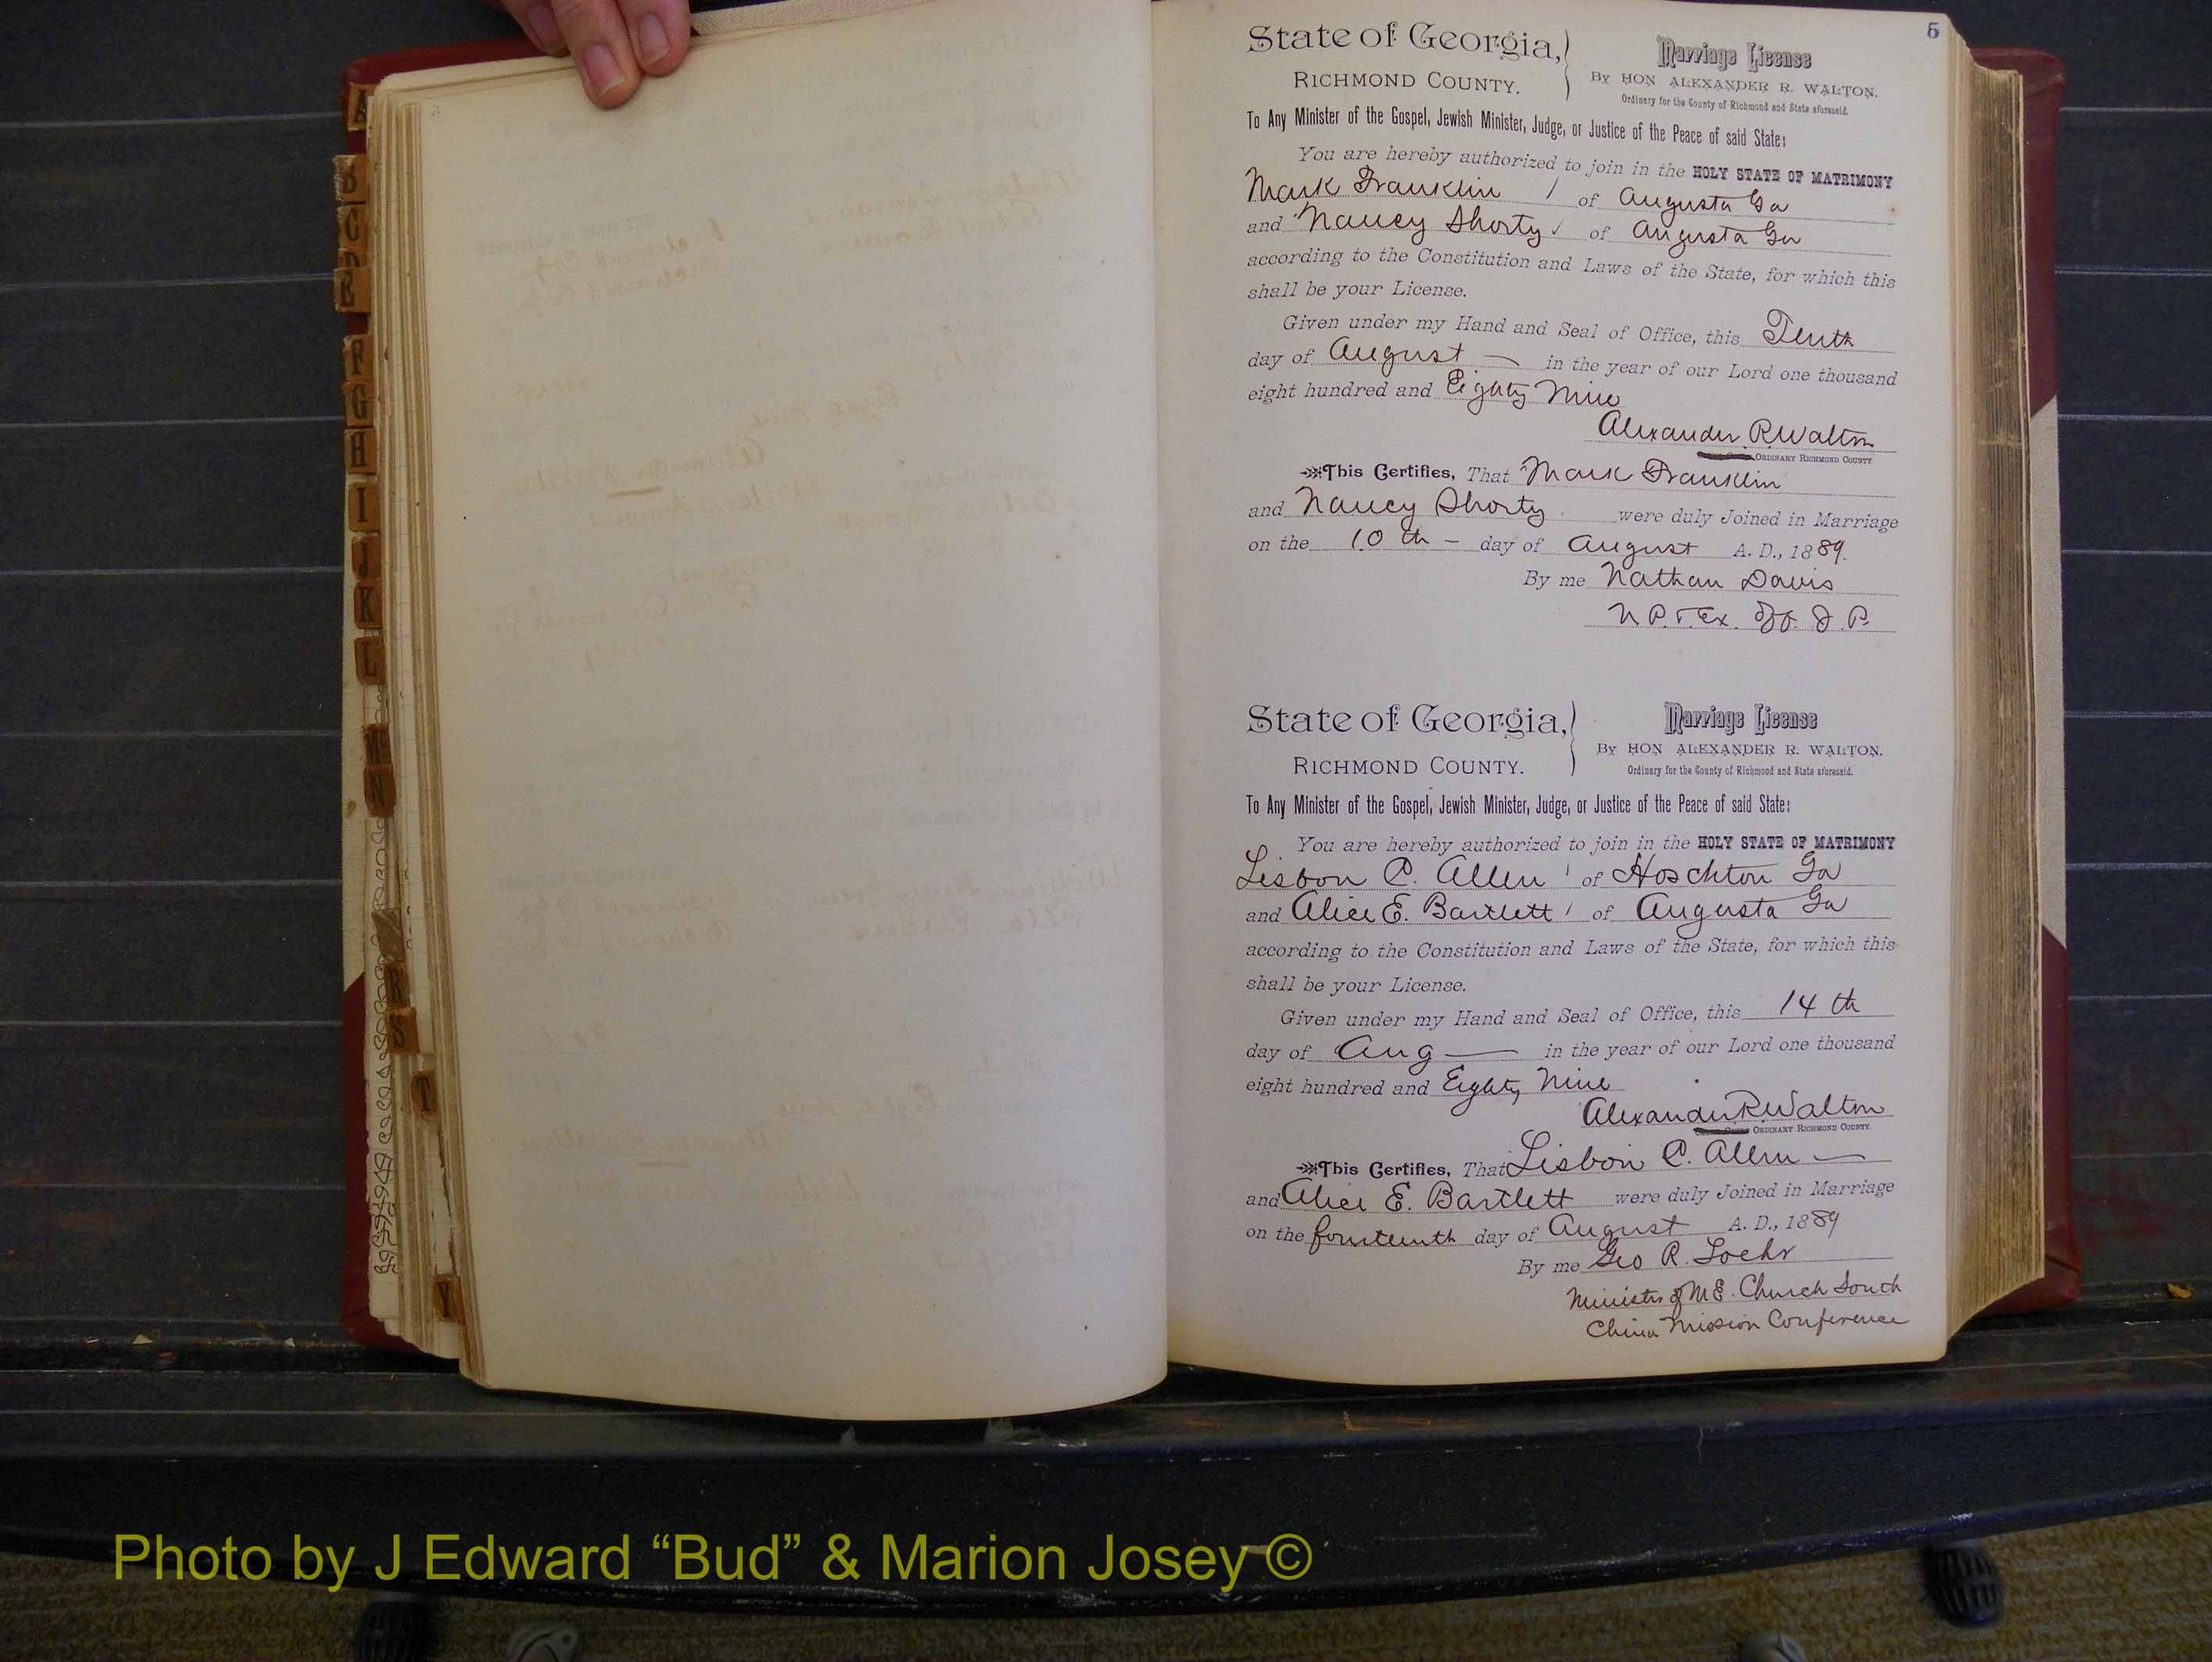 5
State of Georgia,
RICHMOND COUNTY.
Marriage License
By HON ALEXANDER R. WALTON,
Ordinary for the County of Richmond and State aforesaid.
To Any Minister of the Gospel, Jewish Minister, Judge, or Justice of the Peace of said State:
You are hereby authorized to join in the HOLY STATE OF MATRIMONY
Mark Franklin of Augusta Ga
and Nancy Shorty of Augusta Ga
according to the Constitution and Laws of the State, for which this
shall be your License.
Given under my Hand and Seal of Office, this Tenth
day of August in the year of our Lord one thousand
eight hundred and Eighty Nine
Alexander R Walton
ORDINARY RICHMOND COUNTY.
This Certifies, That Mark Franklin
and Nancy Shorty were duly Joined in Marriage
on the 10th day of August A. D., 1889.
By me Nathan Davis
N P. & Ex. Off. J. P.
State of Georgia,
RICHMOND COUNTY.
Marriage License
By HON ALEXANDER R. WALTON,
Ordinary for the County of Richmond and State aforesaid.
To Any Minister of the Gospel, Jewish Minister, Judge, or Justice of the Peace of said State:
You are hereby authorized to join in the HOLY STATE OF MATRIMONY
Lisbon C. Allen of Hoschton Ga
and Alice E. Bartlett of Augusta Ga
according to the Constitution and Laws of the State, for which this
shall be your License.
Given under my Hand and Seal of Office, this 14th
day of Aug in the year of our Lord one thousand
eight hundred and Eighty Nine
Alexander R Walton
ORDINARY RICHMOND COUNTY.
This Certifies, That Lisbon C. Allen
and Alice E. Bartlett were duly Joined in Marriage
on the fourteenth day of August A. D., 1889
By me Geo R. Loehr
Minister of M E. Church South
China Mission Conference
A
B
C
D
E
F
G
H
I
J
K
L
M
N
R
S
T
Y
Photo by J Edward “Bud” & Marion Josey ©